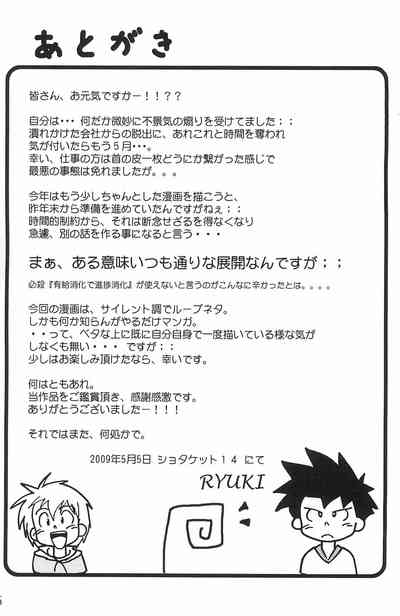 あとがき
皆さん、お元気ですかー！！？？
自分は・・・ 何だか微妙に不景気の煽りを受けてました；；
潰れかけた会社からの脱出に、あれこれと時間を奪われ
気が付いたらもう５月・・・。
幸い、仕事の方は首の皮一枚どうにか繋がった感じで
最悪の事態は免れましたが。。。。
今年はもう少しちゃんとした漫画を描こうと、
昨年末から準備を進めていたんですがねぇ；；
時間的制約から、それは断念せざるを得なくなり
急遽、別の話を作る事になると言う・・・
まぁ、ある意味いつも通りな展開なんですが；；
必殺『有給消化で進捗消化』が使えないと言うのがこんなに辛かったとは。。。。
今回の漫画は、サイレント調でループネタ。
しかも何か知らんがやるだけマンガ。
・・って、ベタな上に既に自分自身で一度描いている様な気が
しなくも無い・・・ ですが；；
少しはお楽しみ頂けたなら、幸いです。
何はともあれ。
当作品をご鑑賞頂き、感謝感激です。
ありがとうございましたー！！！
それではまた、何処かで。
2009年5月5日 ショタケット１４ にて
RYUKI